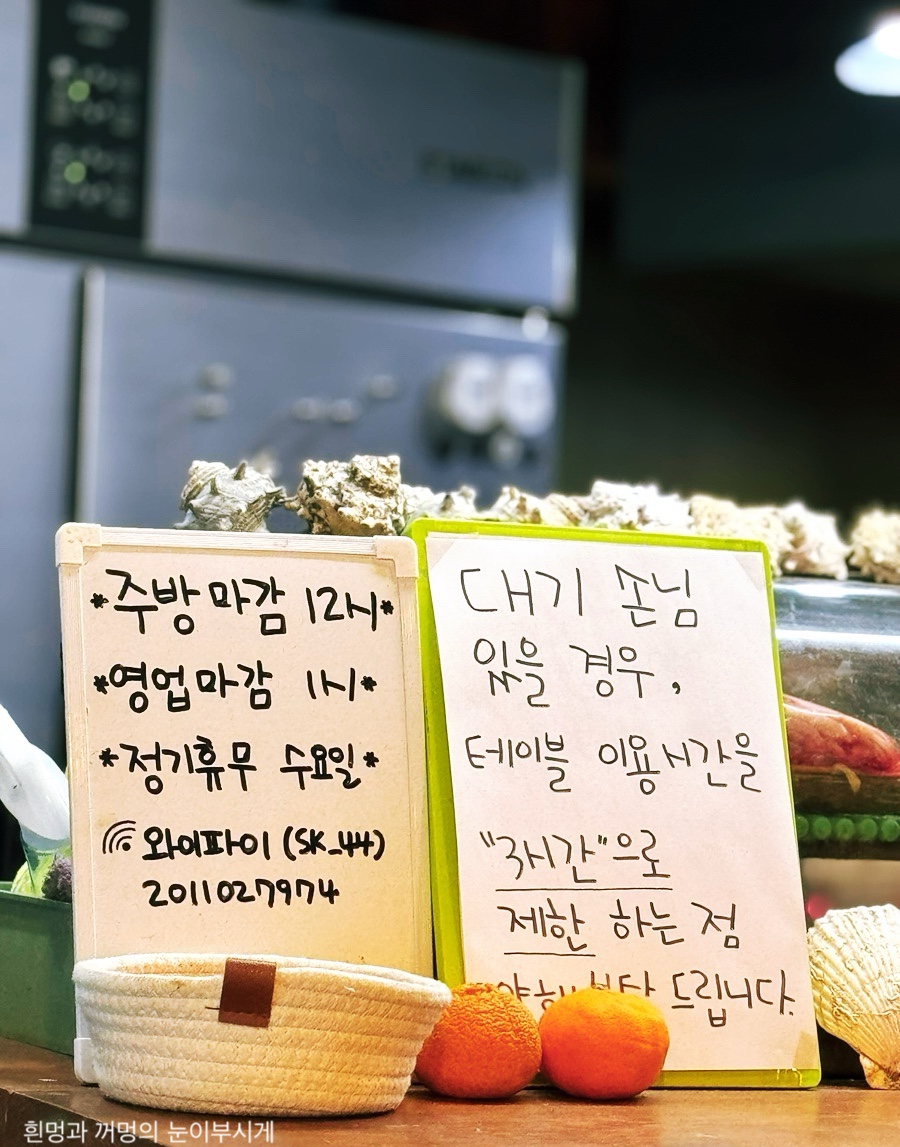 *주방마감 12시*
*영업마감 1시*
*정기휴무 수요일*
와이파이 (SK_44)
2011027974
대기 손님
있을 경우,
테이블 이용시간을
"3시간"으로
제한 하는 점
드립니다.
흰멍과 꺼멍의 눈이부시게